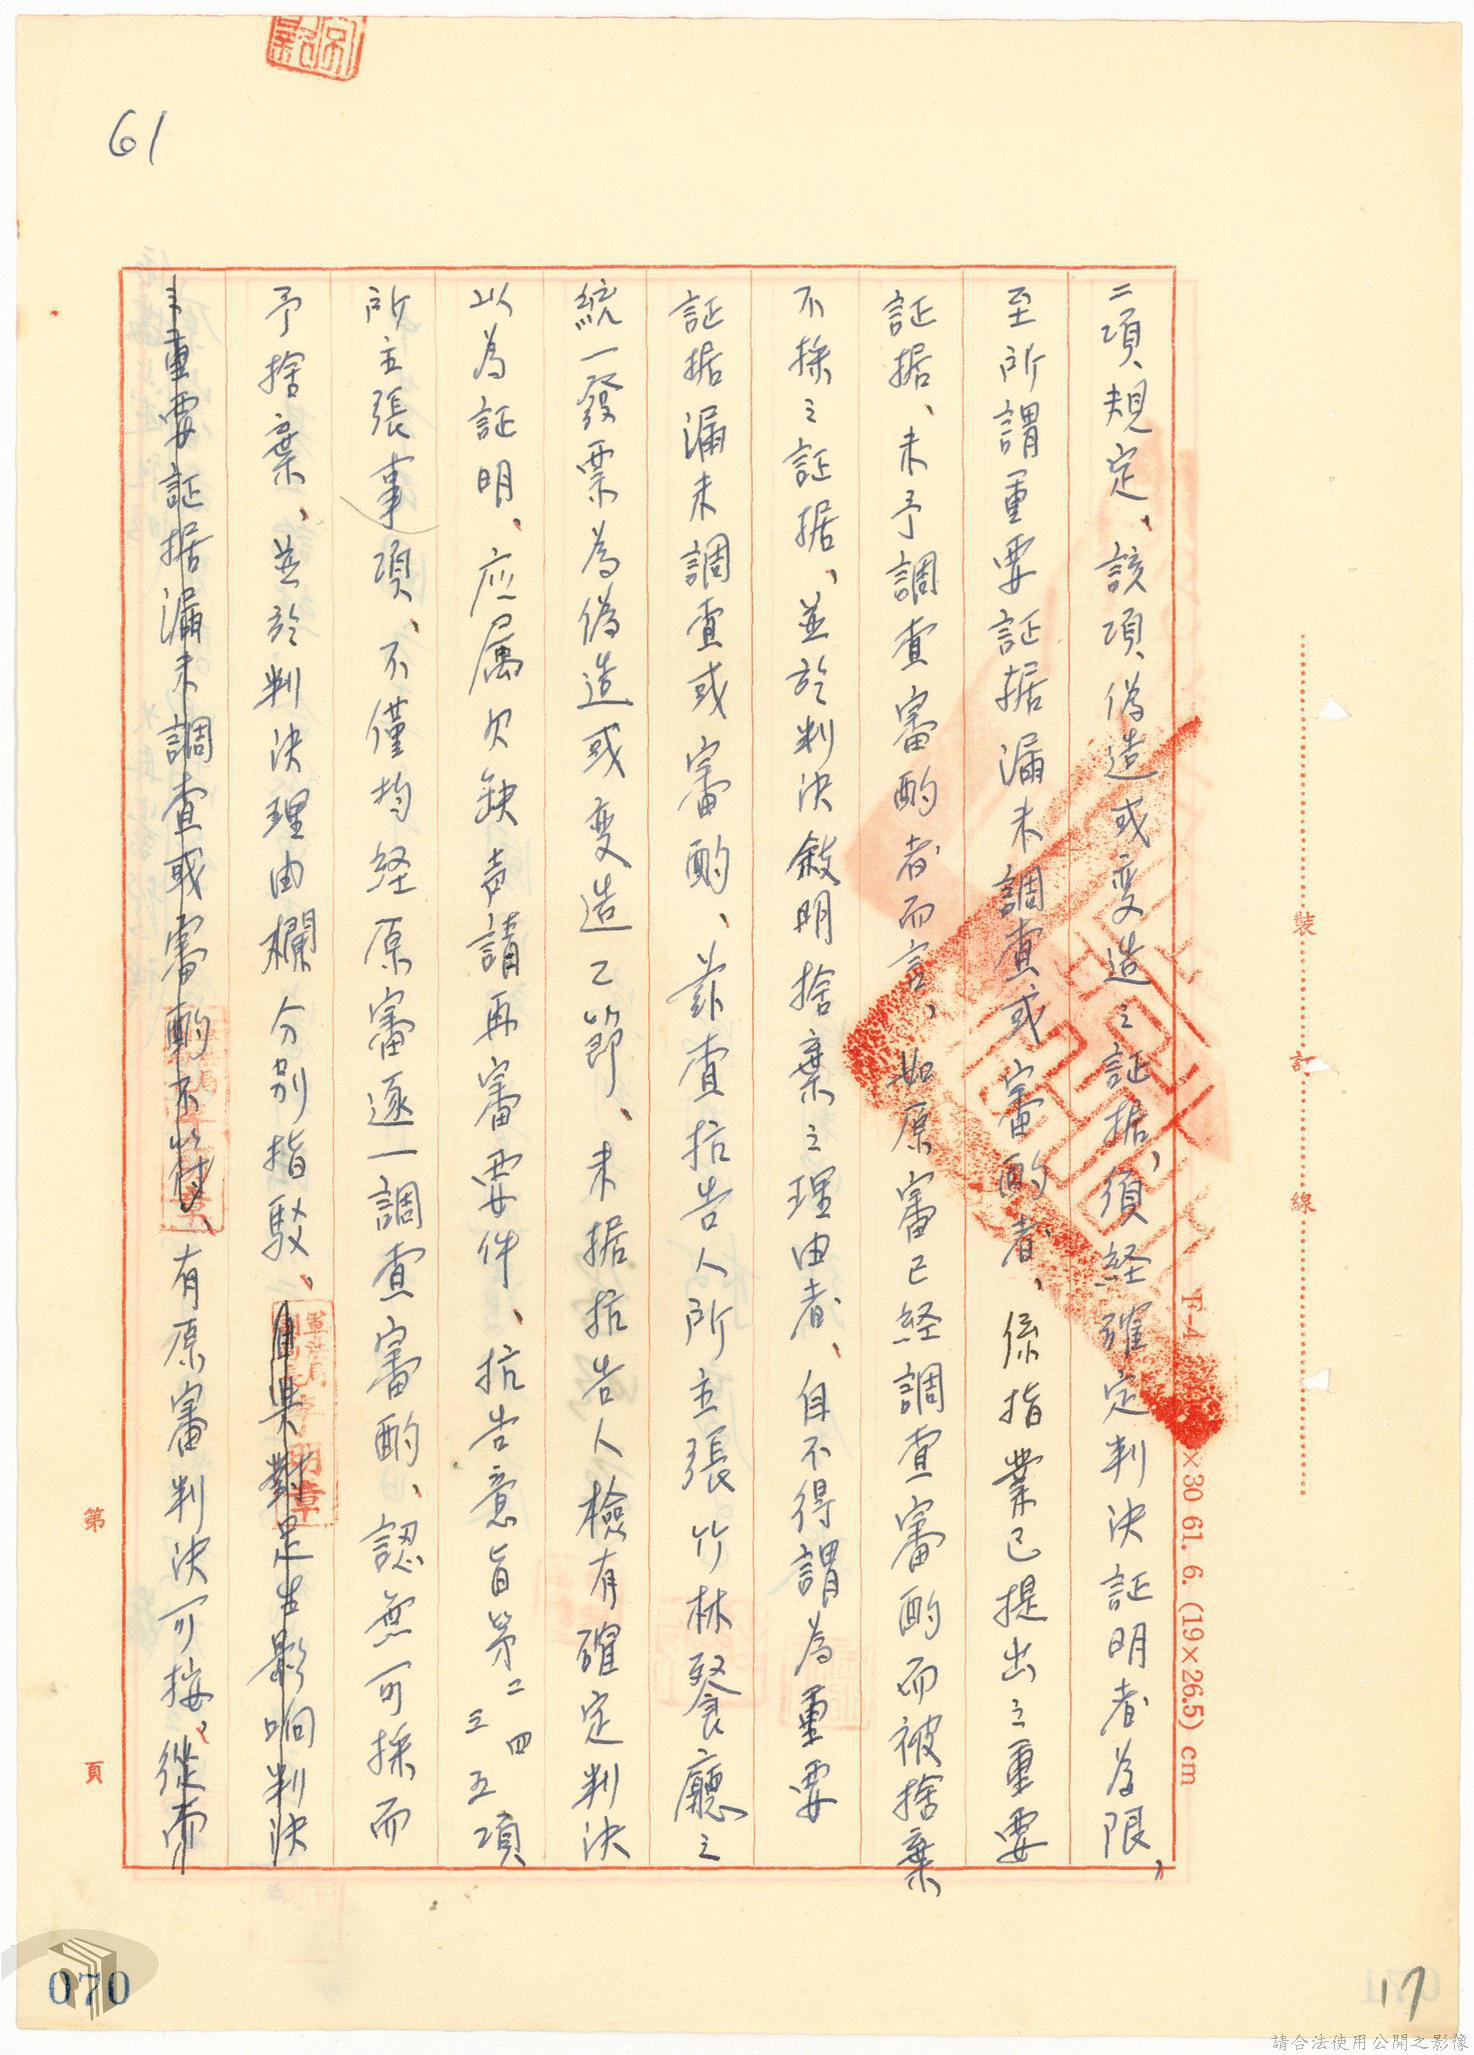 61
二項規定、該項偽造或変造之証据，須経確定判決証明者為限，
至所謂重要証据漏未調查或審酌者、係指業已提出之重要
証据、未予調查審酌者而言、如原審已経調查審酌而被捨棄
不採之証据、並於判決敘明捨棄之理由者、自不得謂為重要
証据漏未調查或審酌、茲查抗告人所主張竹林餐廳之
統一發票為偽造或変造乙節、未据抗告人檢有確定判決
以為証明、应属欠缺声請再審要件、抗告意旨第二三四五項
所主張事項、不僅均経原審逐一調查審酌、認無可採而
予捨棄、並於判決理由欄分別指駁、且與對足生影响判決
之重要証据漏未調查或審酌不符、有原審判決可按、從而
裝
訂
線
F-4
×30 61. 6. (19×26.5) cm
第
頁
070
17
請合法使用公開之影像